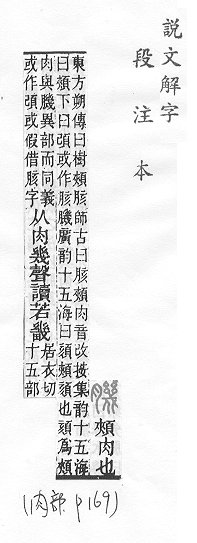 說文解字
段注本
𦠄 頰肉也
東方朔傳曰樹頰胲師古曰胲頰肉音改按集韵十五海
曰頦下曰頦或作胲𦠄廣韵十五海曰頦頰頦也頦為頰
肉與𦠄異部而同義
或作頦或假借胲字
从肉幾聲讀若畿
居衣切
十五部
(肉部 p169)